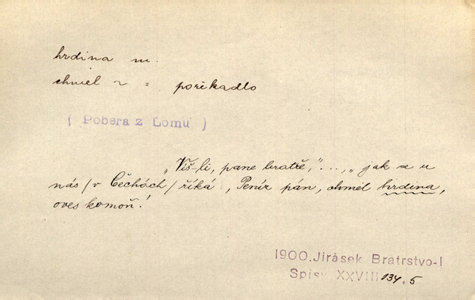 hrdina m.
chmel v : pořikadlo
( Pobera z Lomu )
„Víš-li, pane bratře,"..., „jak se u
nás /v Čechách/ říká, Peníz pán, chmel hrdina,
oves komoň!
1900.Jirásek Bratrstvo-I
Spisy XXVIII 134.5